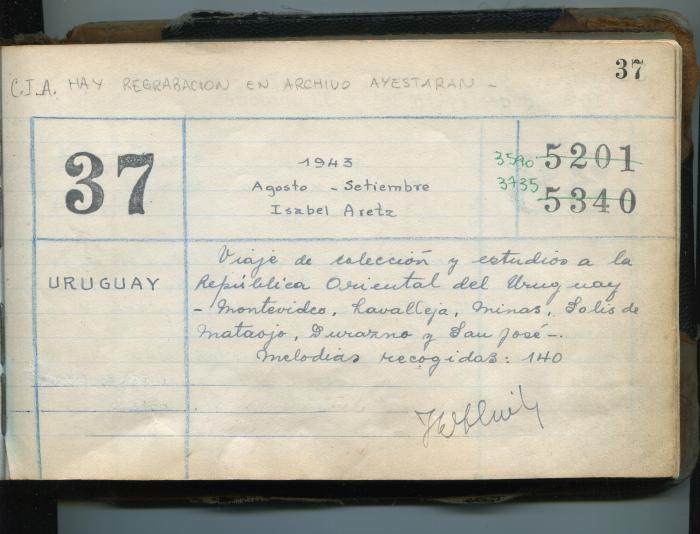 37
C.J.A. HAY REGRABACION EN ARCHIVO AYESTARAN -
37
1943
Agosto - Setiembre
Isabel Aretz
3590 5201
3735 5340
URUGUAY
Viaje de colección y estudios a la
República Oriental del Uruguay
- Montevideo, Lavalleja, Minas, Solis de
Mataojo, Durazno y San José -.
Melodias recogidas: 140